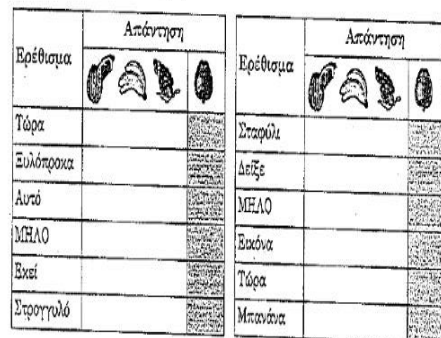 Ερέθισμα
Απάντηση
Τώρα
Ξυλόπροκα
Αυτό
ΜΗΛΟ
Εκεί
Στρογγυλό
Ερέθισμα
Απάντηση
Σταφύλι
Δείξε
ΜΗΛΟ
Εικόνα
Τώρα
Μπανάνα